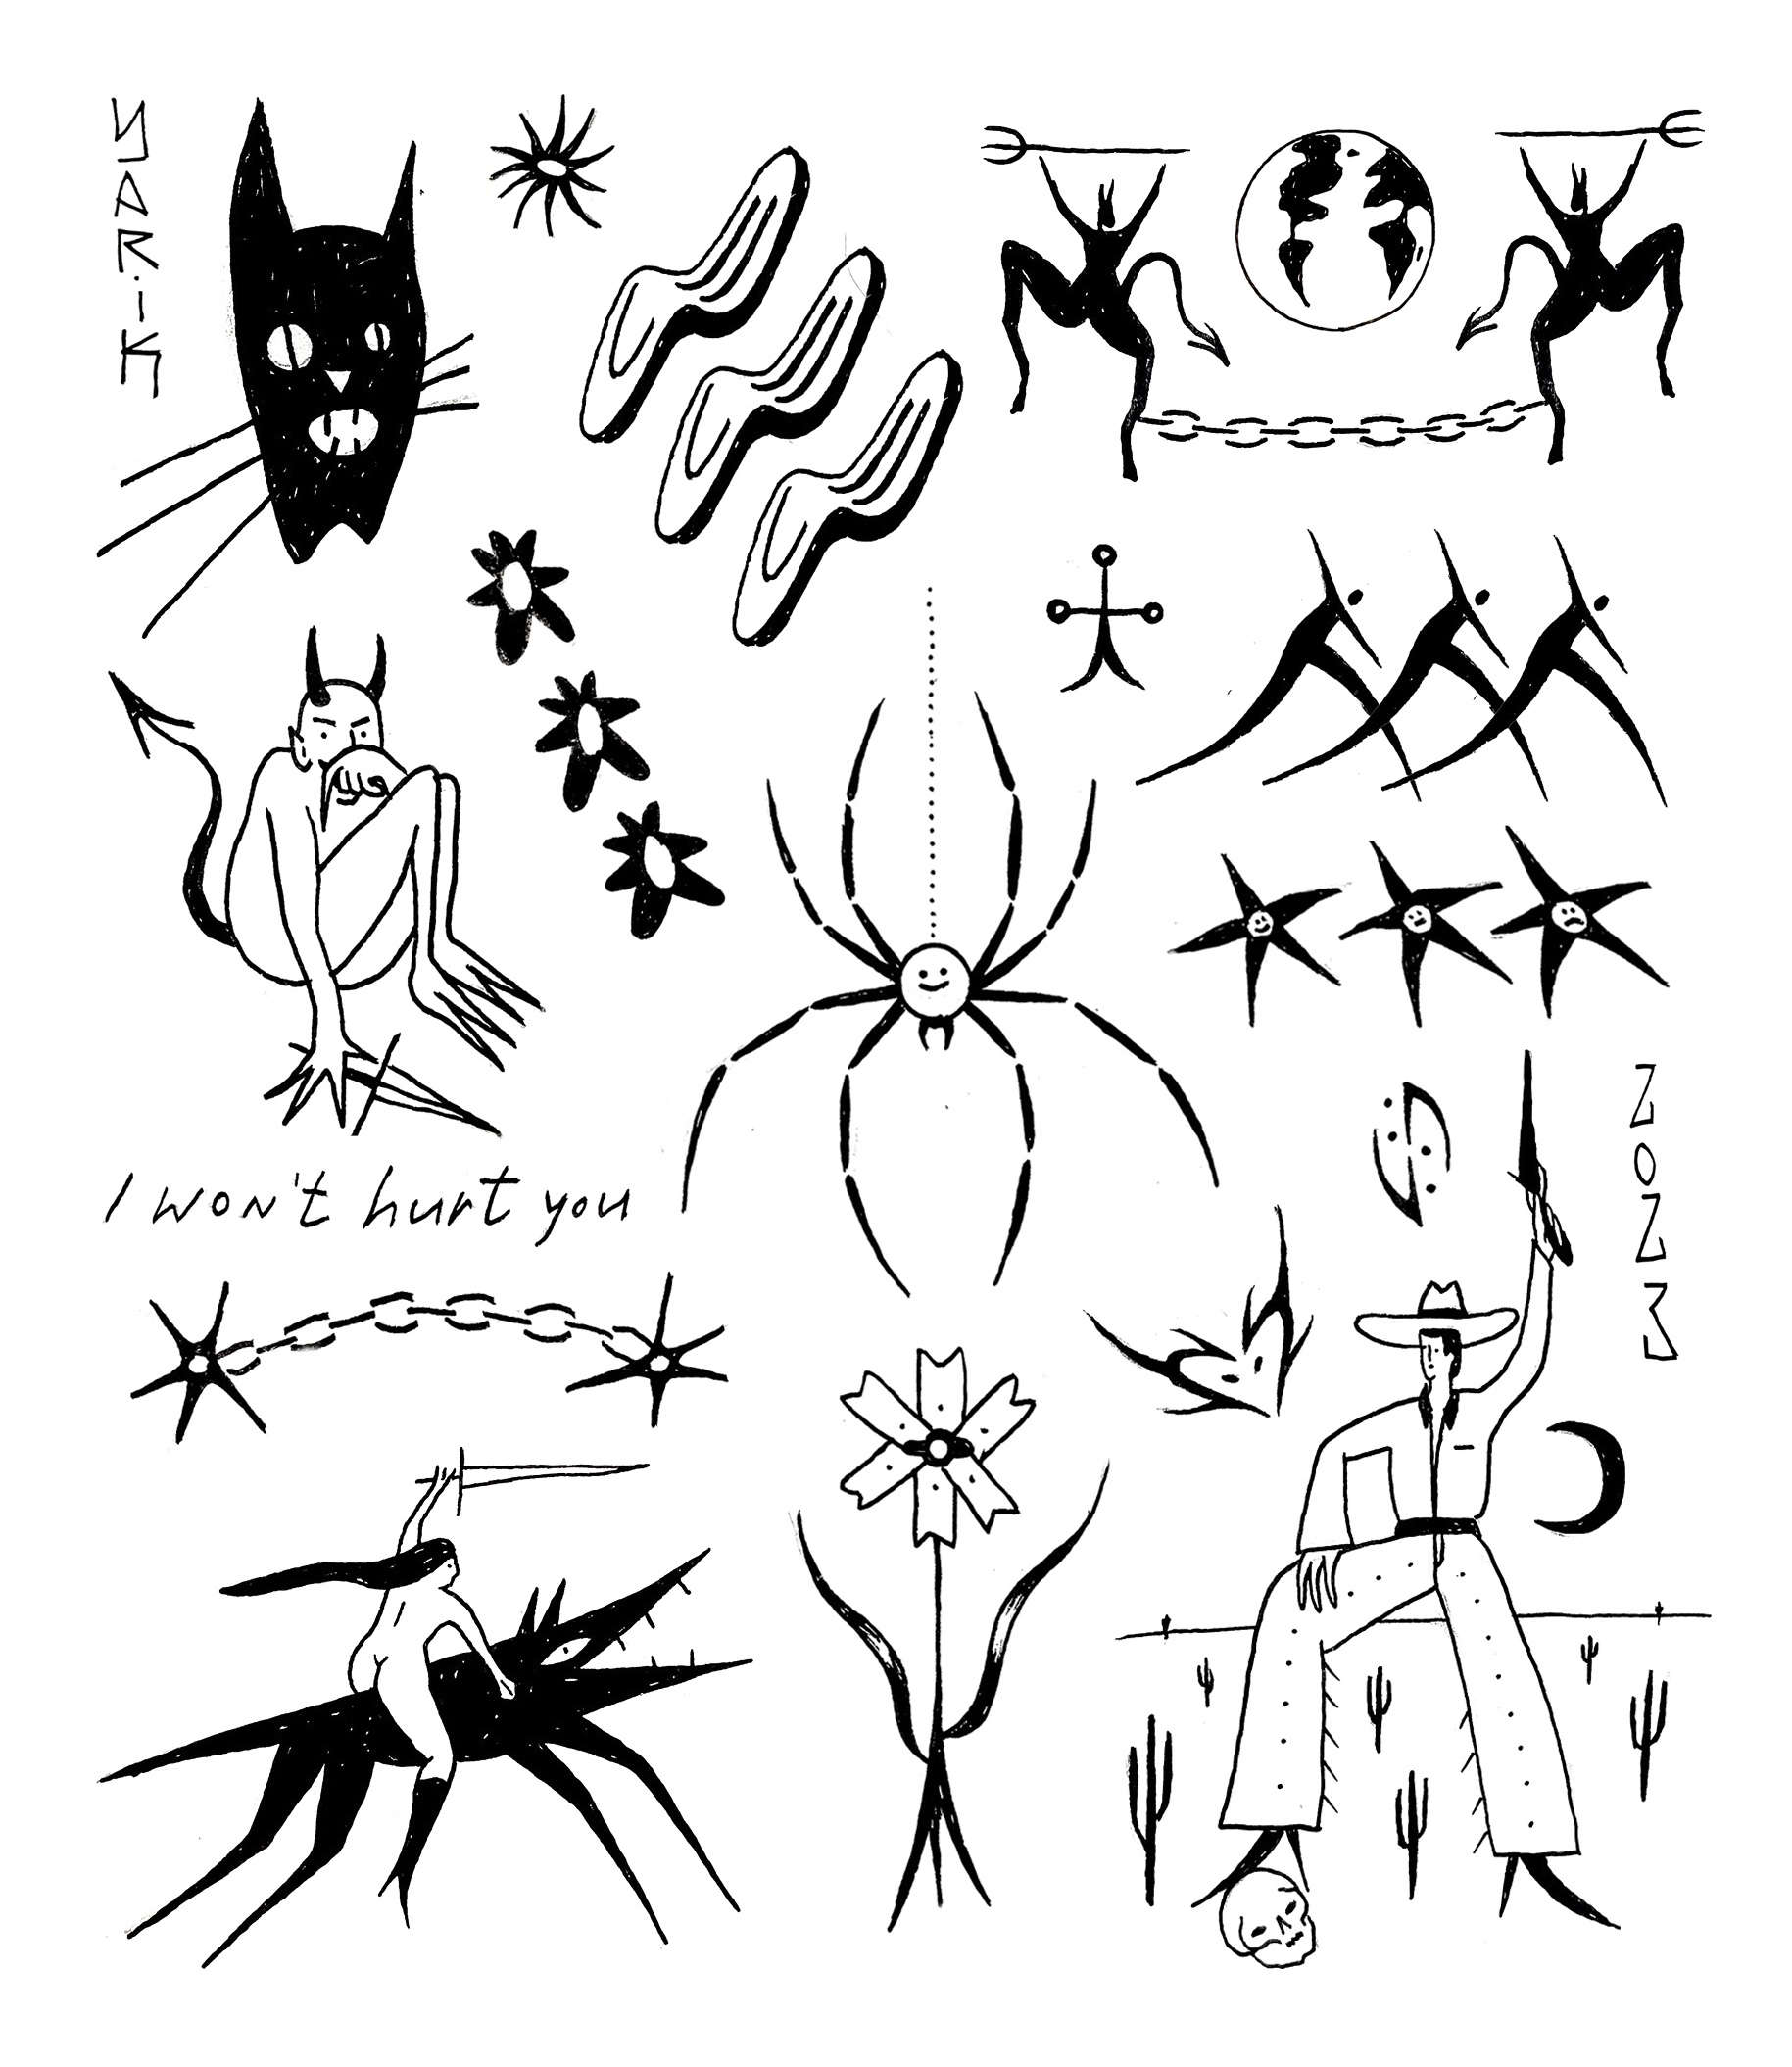 YARiK
I won't hurt you
2023